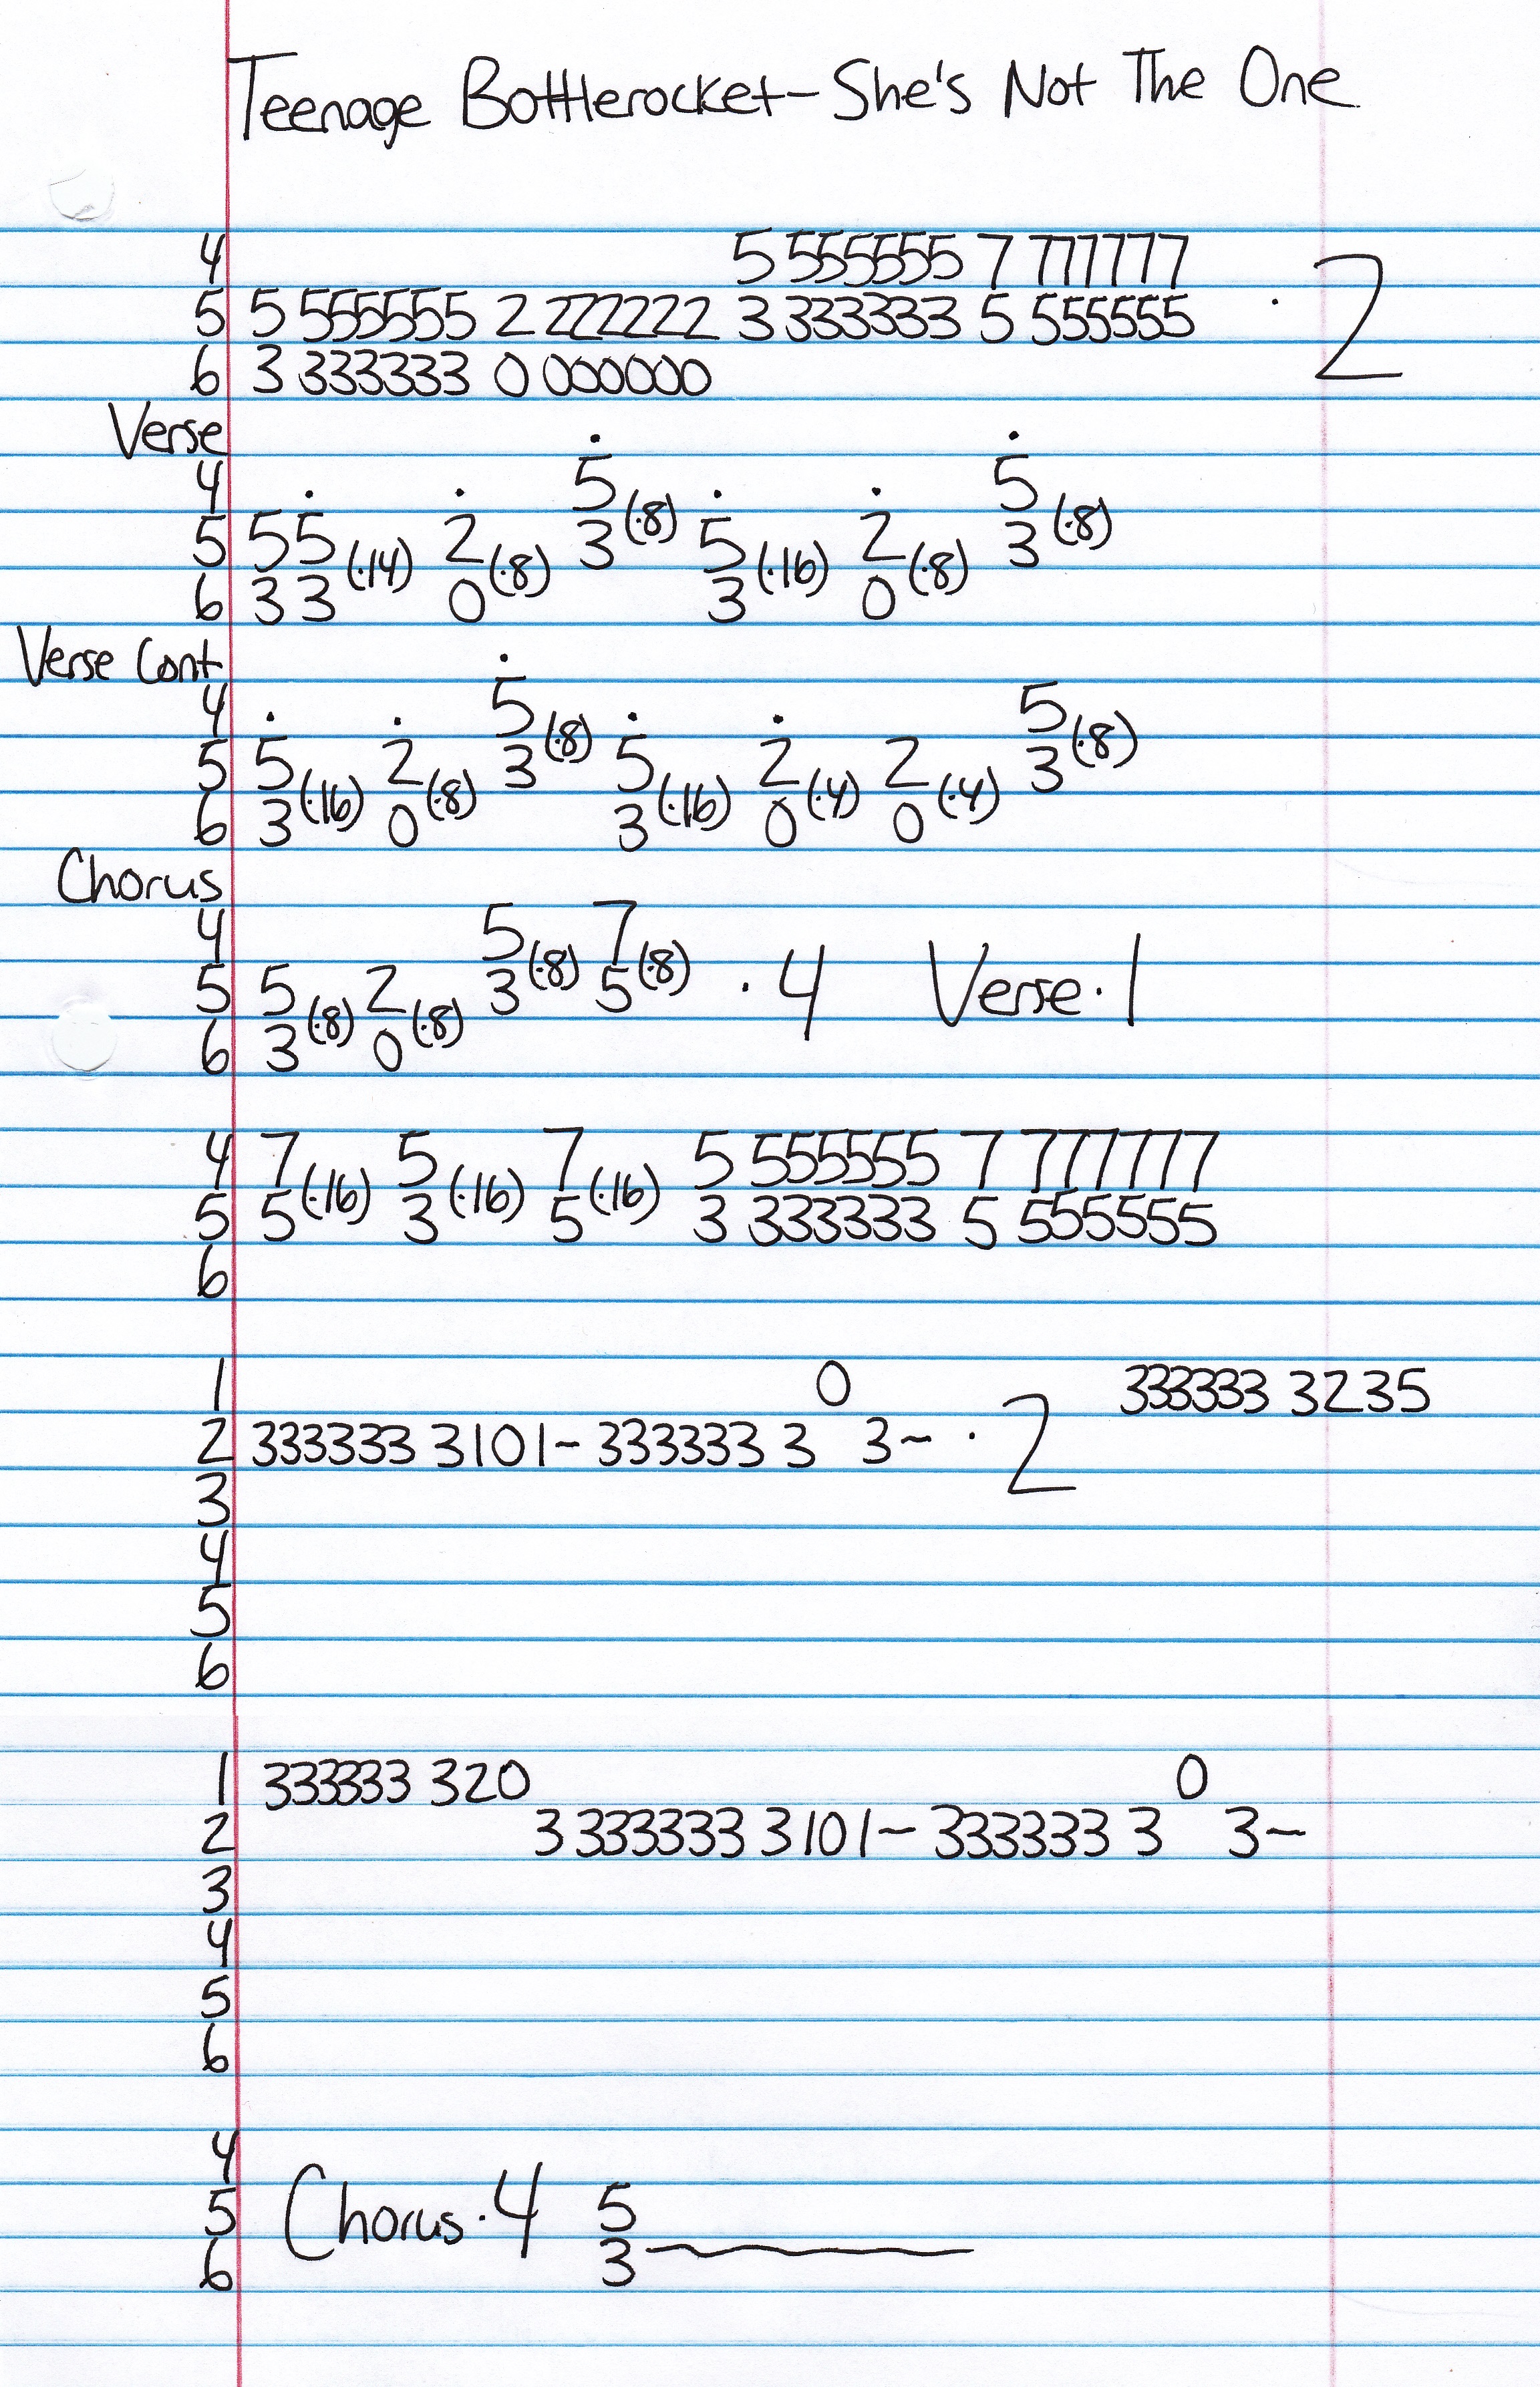 Teenage Bottlerocket - She's Not The One
4 5 555555 7 777777
5 5 555555 2 222222 3 333333 5 555555 · 2
6 3 333333 0 000000
Verse
4 5 5
5 55 2 3 (·8) 5 2 3 (·8)
6 33 (·14) 0 (·8) 3 (·16) 0 (·8)
Verse Cont
4 5 5
5 5 2 3 (·8) 5 2 2 3 (·8)
6 3 (·16) 0 (·8) 3 (·16) 0 (·4) 0 (·4)
Chorus
4 5 7
5 5 2 3 (·8) 5 (·8) · 4 Verse · 1
6 3 (·8) 0 (·8)
4 7 (·16) 5 (·16) 7 (·16) 5 555555 7 777777
5 5 3 5 3 333333 5 555555
6
1 0 333333 3235
2 333333 3101~ 333333 3 3~ · 2
3
4
5
6
1 333333 320 0
2 3 333333 3101~ 333333 3 3~
3
4
5
6
4
5 Chorus · 4 5
6 3